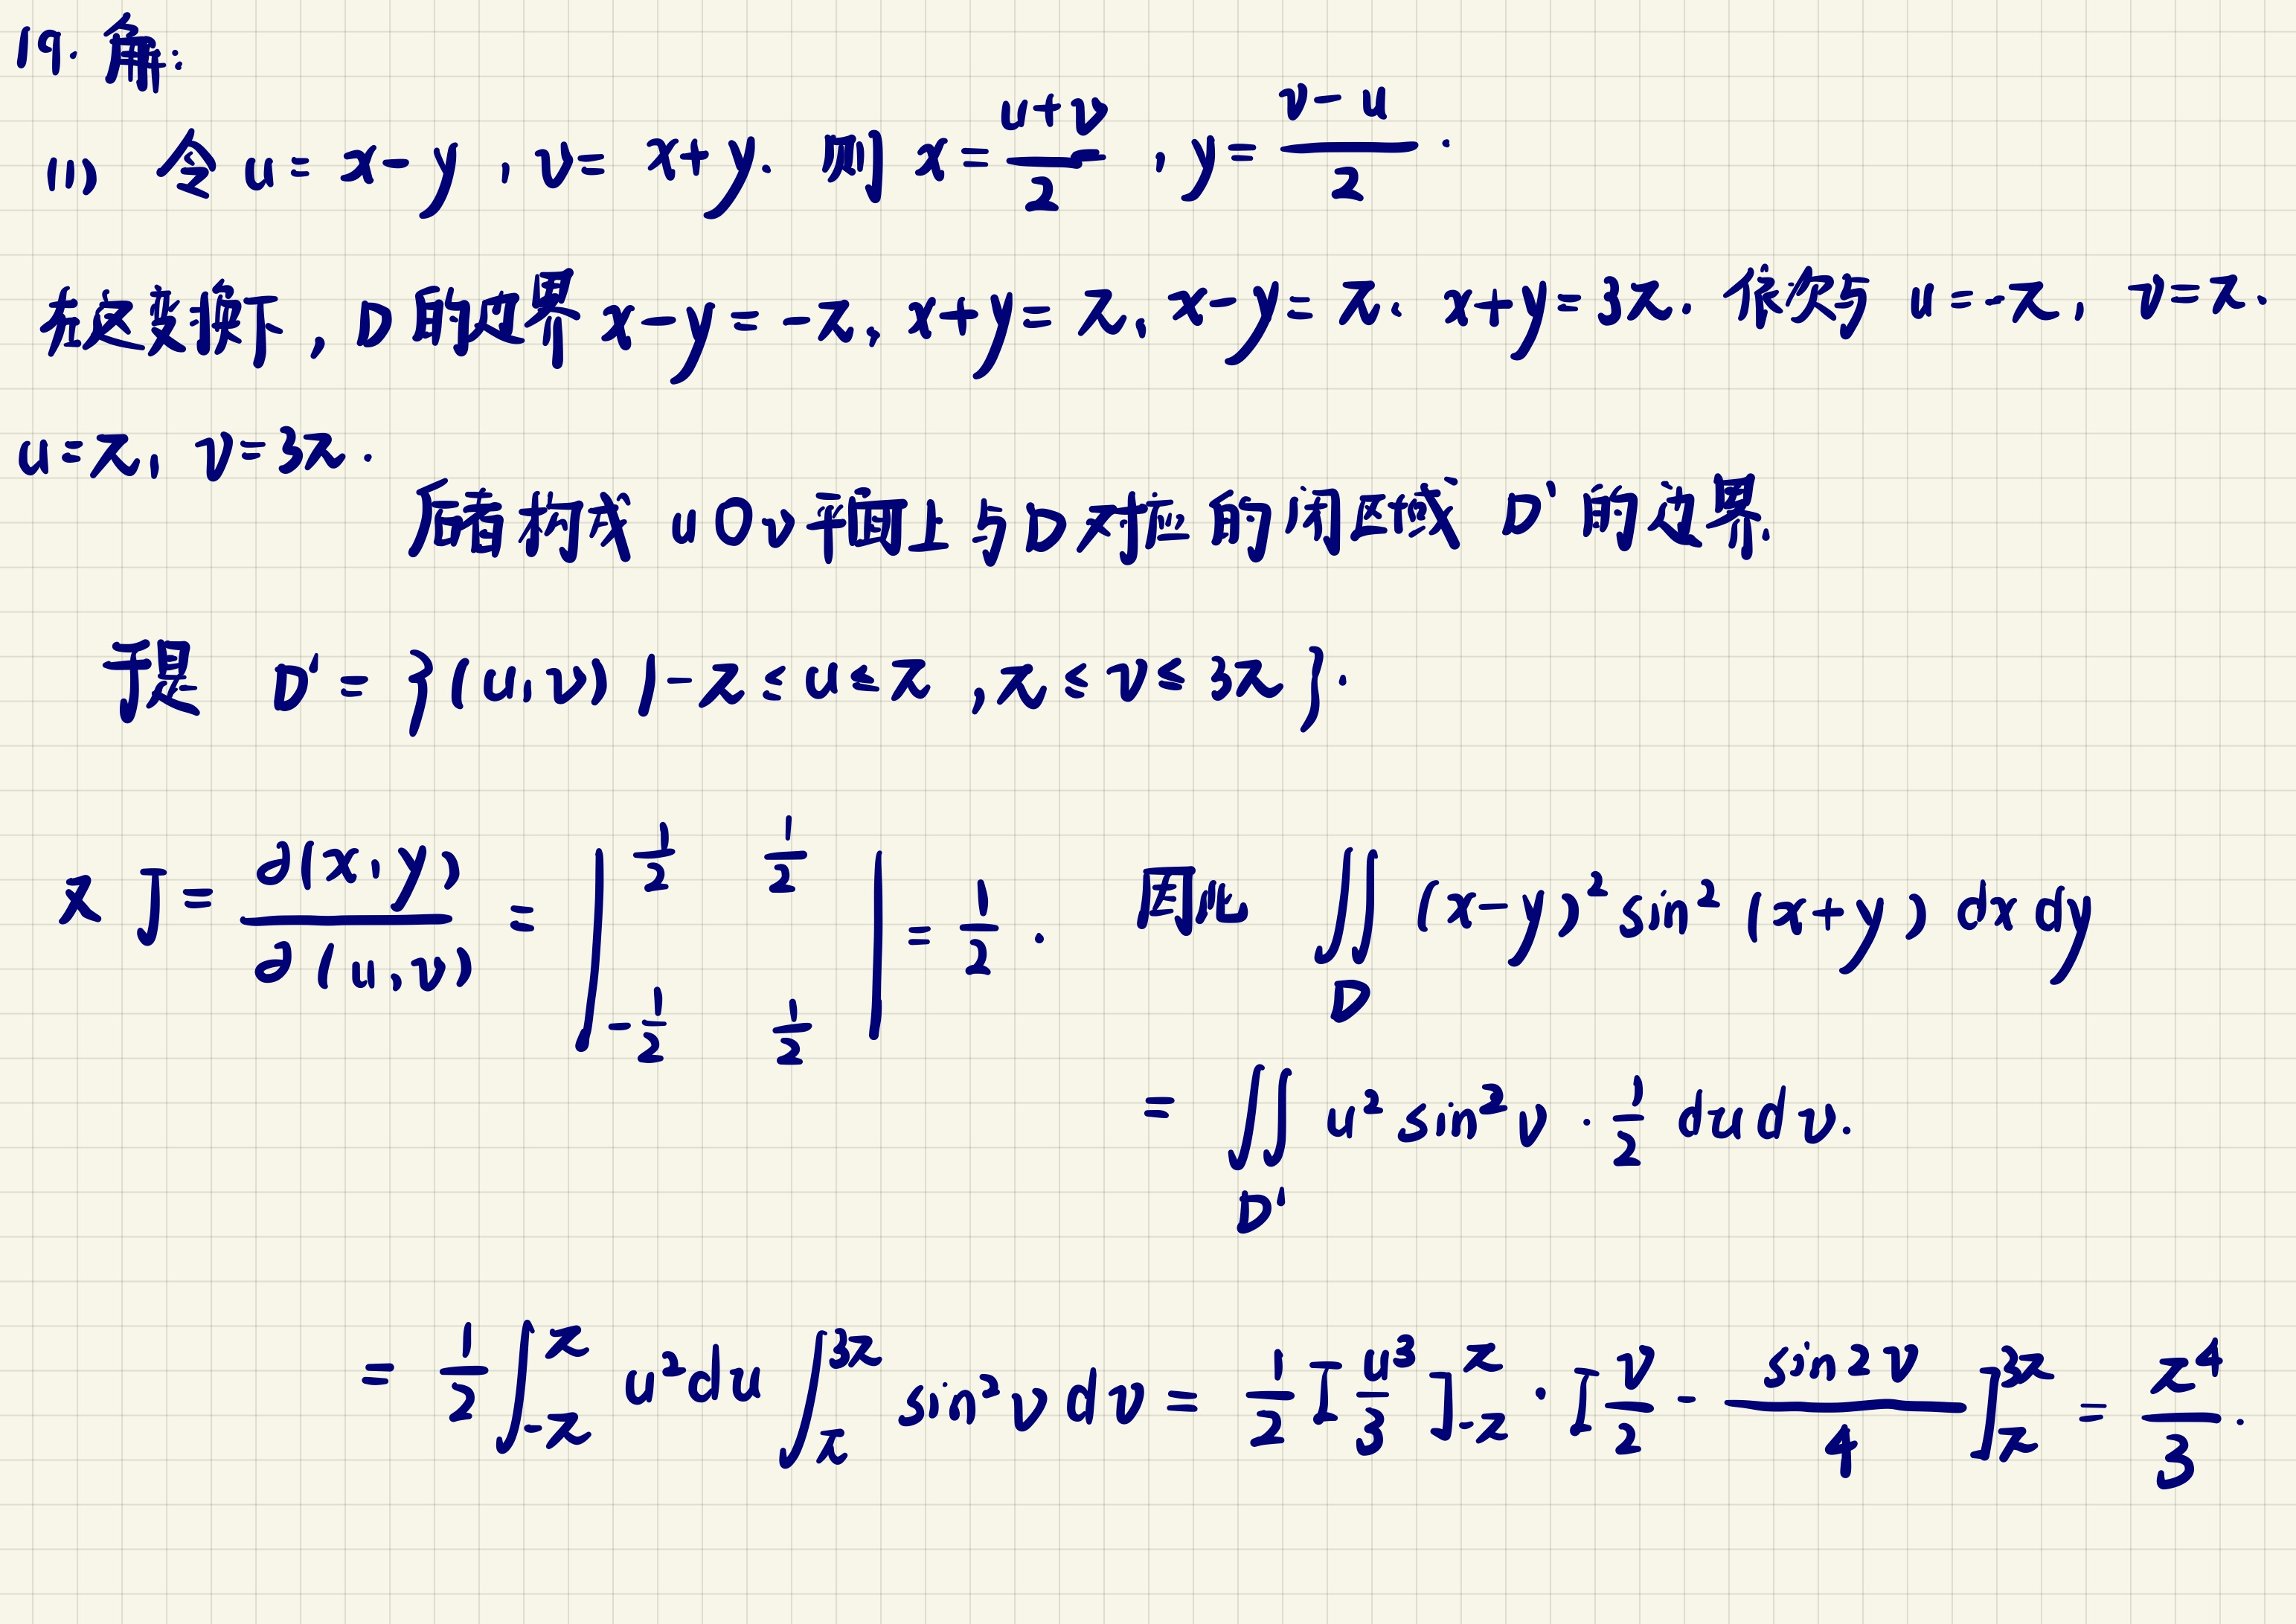 19. 解:
(1) 令 u = x-y , v = x+y. 则 x = \frac{u+v}{2} , y = \frac{v-u}{2} .
在这变换下, D 的边界 x-y = -π, x+y = π, x-y = π, x+y = 3π. 依次与 u = -π, v = π.
u = π, v = 3π.
后者构成 uOv平面上与D对应的闭区域 D' 的边界.
于是 D' = {(u, v) | -π ≤ u ≤ π , π ≤ v ≤ 3π}.
又 J = \frac{∂(x, y)}{∂(u, v)} = \begin{vmatrix} \frac{1}{2} & \frac{1}{2} \\ -\frac{1}{2} & \frac{1}{2} \end{vmatrix} = \frac{1}{2} . 因此 \iint_{D} (x-y)^2 sin^2 (x+y) dx dy
= \iint_{D'} u^2 sin^2 v · \frac{1}{2} du dv.
= \frac{1}{2} \int_{-π}^{π} u^2 du \int_{π}^{3π} sin^2 v dv = \frac{1}{2} [\frac{u^3}{3}]_{-π}^{π} · [\frac{v}{2} - \frac{sin 2v}{4}]_{π}^{3π} = \frac{π^4}{3} .